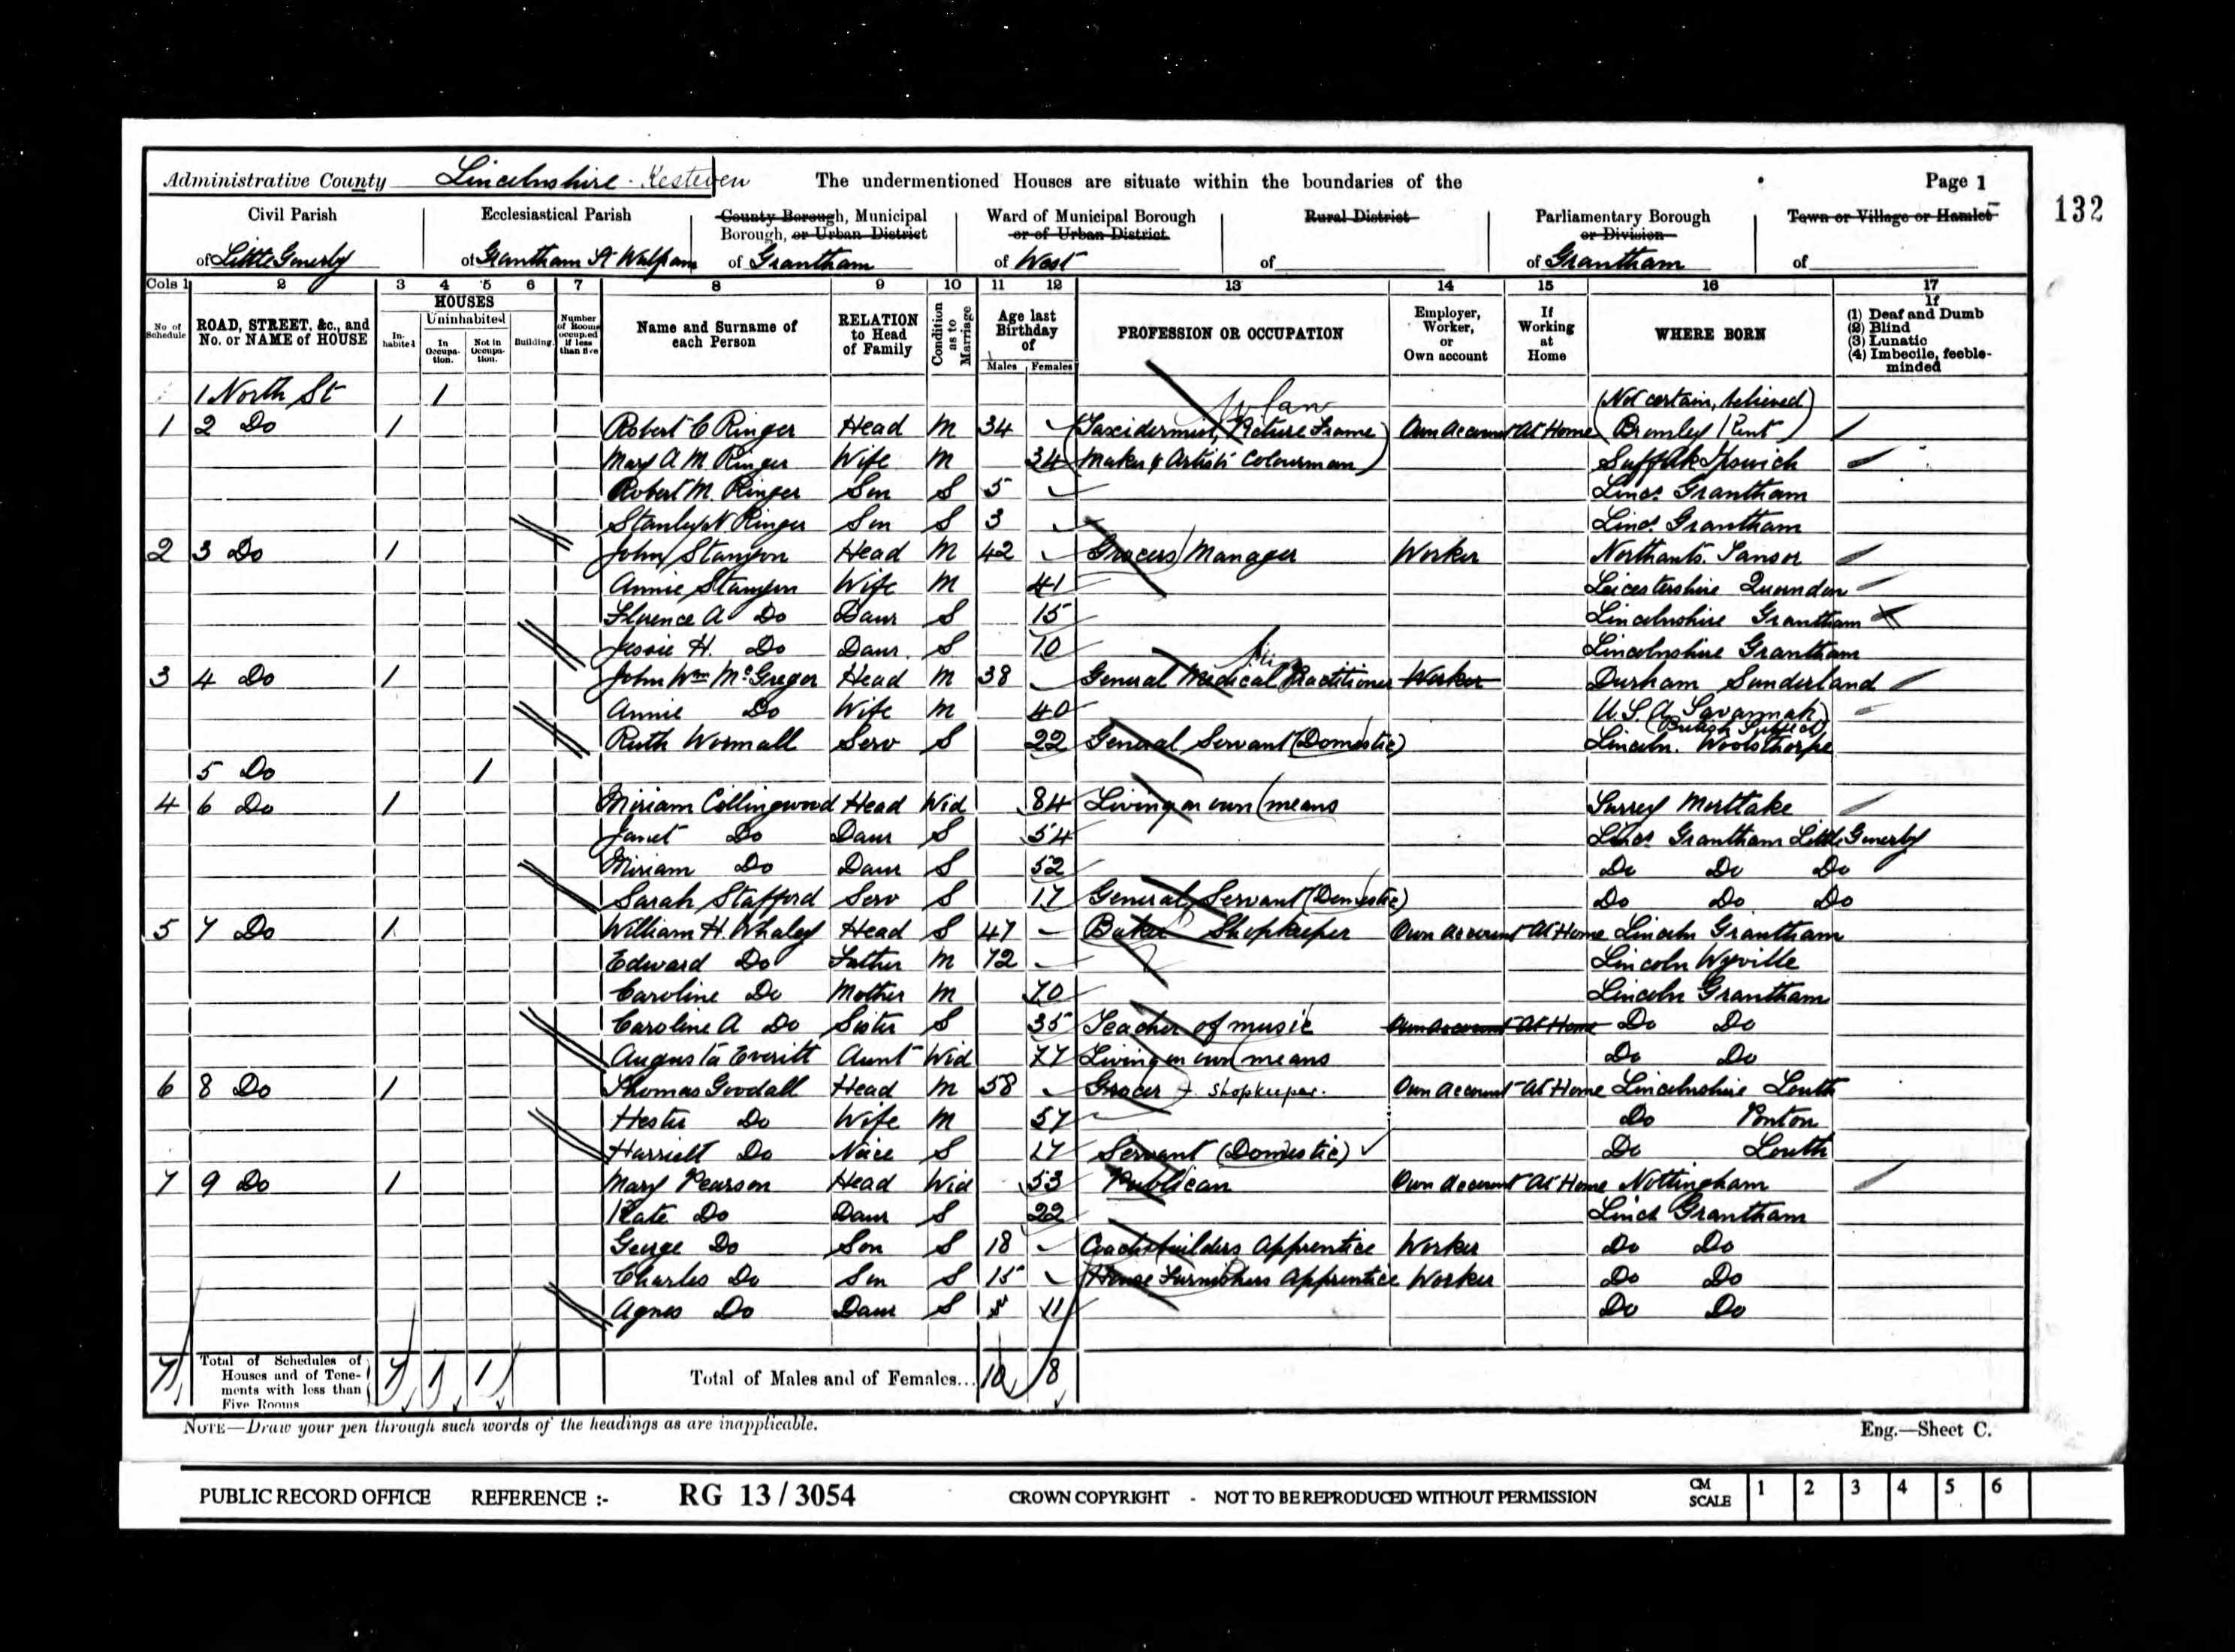 Administrative County Lincolnshire - Kesteven The undermentioned Houses are situate within the boundaries of the Page 1
132
Civil Parish Ecclesiastical Parish County Borough, Municipal Ward of Municipal Borough Rural District Parliamentary Borough Town or Village or Hamlet
Borough, or Urban District or of Urban District or Division
of Little Gonerby of Grantham St Wulfram of Grantham of West of of Grantham of
Cols 1 2 3 4 5 6 7 8 9 10 11 12 13 14 15 16 17
No of Schedule ROAD, STREET, &c., and No. or NAME of HOUSE HOUSES In-habited Uninhabited In Occupa-tion. Not in Occupa-tion. Building. Number of Rooms occupied if less than five Name and Surname of each Person RELATION to Head of Family Condition as to Marriage Age last Birthday of Males Females PROFESSION OR OCCUPATION Employer, Worker, or Own account If Working at Home WHERE BORN If (1) Deaf and Dumb (2) Blind (3) Lunatic (4) Imbecile, feeble-minded
1 North St 1 (Not certain, believed)
1 2 Do 1 Robert C Ringer Head M 34 (Taxidermist, Picture Frame Own account At Home Bromley Kent)
Mary A M Ringer Wife M 34 Maker & Artists Colourman) Suffolk Ipswich
Robert M. Ringer Son S 5 Lincs. Grantham
Stanley N. Ringer Son S 3 Lincs. Grantham
2 3 Do 1 John Stanyon Head M 42 Grocers Manager Worker Northants. Tansor
Annie Stanyon Wife M 41 Leicestershire Quorndon
Florence A Do Daur S 15 Lincolnshire Grantham
Jessie H. Do Daur. S 10 Lincolnshire Grantham
3 4 Do 1 John Wm McGregor Head M 38 General Medical Practitioner Worker Durham Sunderland
Annie Do Wife M 40 U.S.A. Savannah
(British Subject)
Ruth Wormall Serv S 22 General Servant (Domestic) Lincoln. Woolsthorpe
5 Do 1
4 6 Do 1 Miriam Collingwood Head Wid 84 Living on own means Surrey Mortlake
Janet Do Daur S 54 Lincs Grantham Little Gonerby
Miriam Do Daur S 52 Do Do Do
Sarah Stafford Serv S 17 General Servant (Domestic) Do Do Do
5 7 Do 1 William H. Whaley Head S 47 Baker Shopkeeper Own account At Home Lincoln Grantham
Edward Do Father M 72 Lincoln Wyville
Caroline Do Mother M 70 Lincoln Grantham
Caroline A Do Sister S 35 Teacher of music Own account At Home Do Do
Augusta Everitt Aunt Wid 77 Living on own means Do Do
6 8 Do 1 Thomas Goodall Head M 58 Grocer + Shopkeeper. Own account At Home Lincolnshire Louth
Hester Do Wife M 57 Do Ponton
Harriett Do Neice S 17 Servant (Domestic) Do Louth
7 9 Do 1 Mary Pearson Head Wid 53 Publican Own account At Home Nottingham
Kate Do Daur S 22 Lincs Grantham
George Do Son S 18 Coachbuilders Apprentice Worker Do Do
Charles Do Son S 15 House Furnishers Apprentice Worker Do Do
Agnes Do Daur S 11 Do Do
7 Total of Schedules of Houses and of Tene-ments with less than Five Rooms 7 1 1 Total of Males and of Females... 10 18
NOTE—Draw your pen through such words of the headings as are inapplicable. Eng.—Sheet C.
PUBLIC RECORD OFFICE REFERENCE :- RG 13 / 3054 CROWN COPYRIGHT - NOT TO BE REPRODUCED WITHOUT PERMISSION CM SCALE 1 2 3 4 5 6